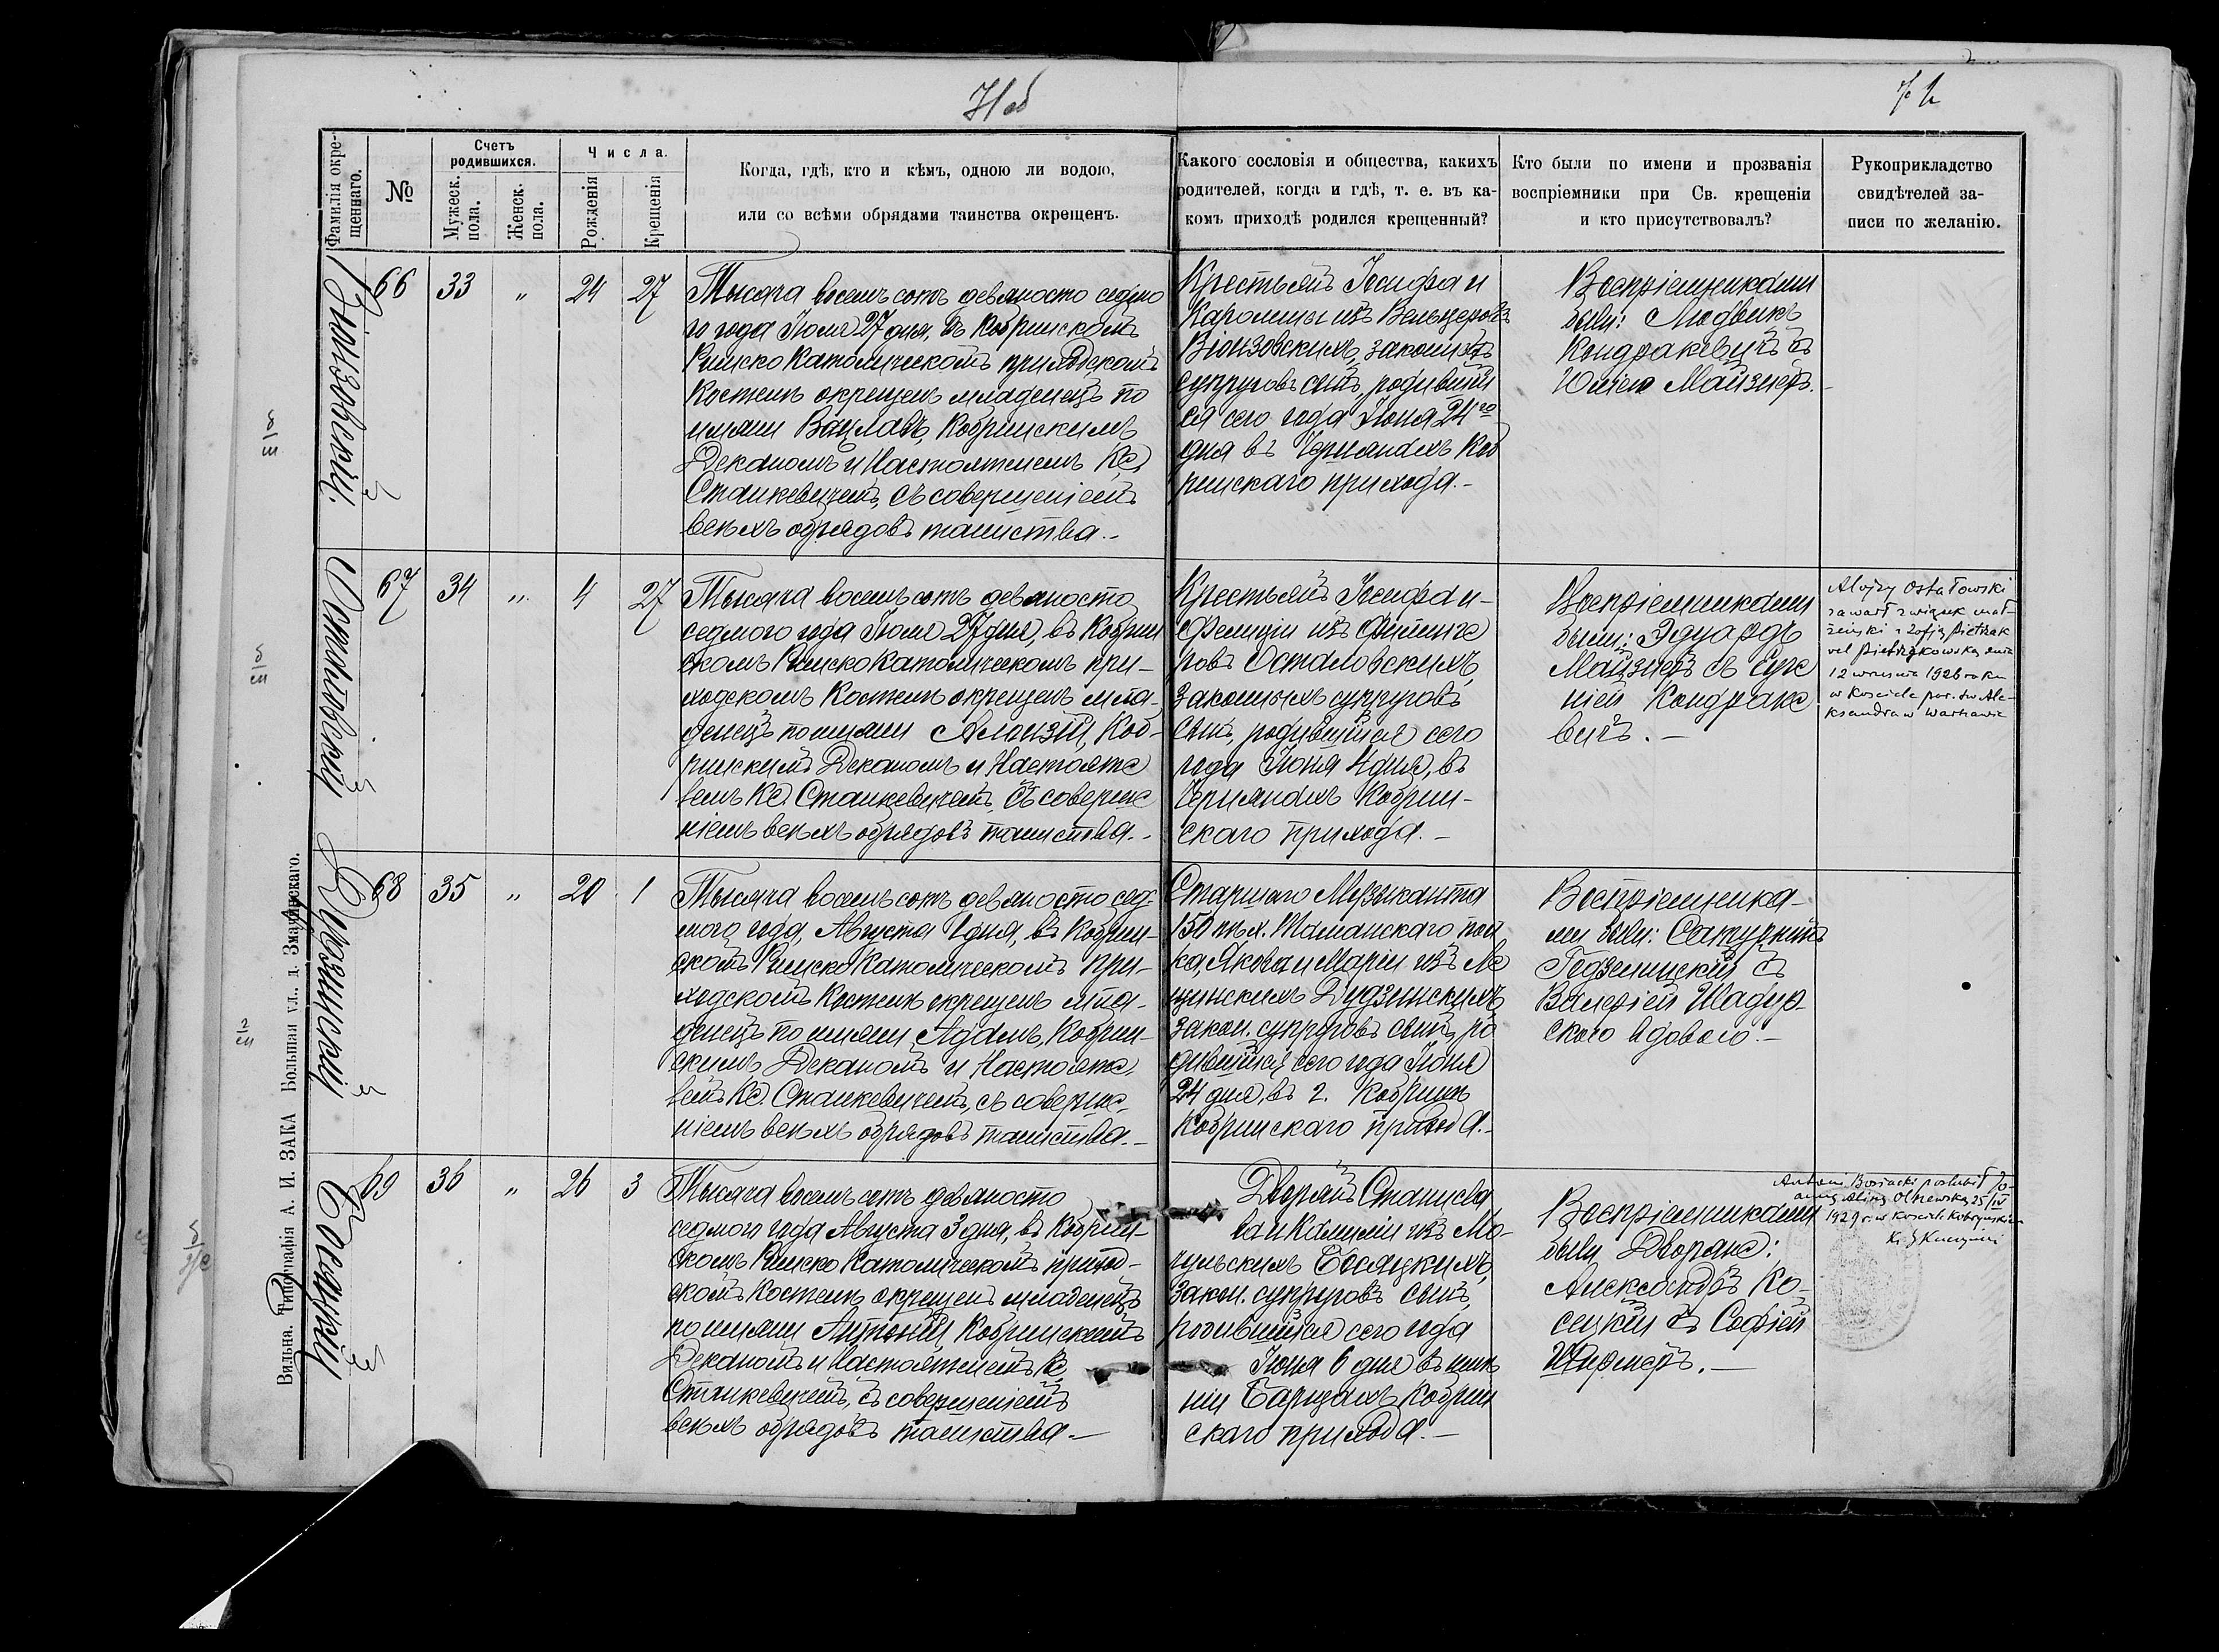 71 об
72
Фамилія окре-
щеннаго.
№
Счетъ
родившихся.
Мужеск.
пола.
Женск.
пола.
Числа.
Рожденія
Крещенія
Когда, гдѣ, кто и кѣмъ, одною ли водою,
или со всѣми обрядами таинства окрещенъ.
Какого сословія и общества, какихъ
родителей, когда и гдѣ, т. е. въ ка-
комъ приходѣ родился крещенный?
Кто были по имени и прозванія
воспріемники при Св. крещеніи
и кто присутствовалъ?
Рукоприкладство
свидѣтелей за-
писи по желанію.
Віонзовскій
66
33
"
24
27
Тысяча восемьсотъ девяносто седмо
го года Іюля 27 дня, въ Кобринскомъ
Римско Католическомъ приходскомъ
Костелѣ окрещенъ младенецъ по
имени Вацлавъ, Кобринскимъ
Деканомъ и Настоятелемъ Кс.
Станкевичемъ, съ совершеніемъ
всѣхъ обрядовъ таинства.-
Крестьянъ Іосифа и
Каролины изъ Вельцеровъ
Віонзовскихъ, законныхъ
супруговъ сынъ, родившій
ся сего года Іюня 24го
дня въ Чернянахъ Коб
ринскаго прихода.-
Воспріемниками
были: Людвикъ
Кондракевичъ съ
Юліею Майзнеръ.-
Осталовскій
67
34
"
4
27
Тысяча восемьсотъ девяносто
седмого года Іюля 27 дня, въ Кобрин
скомъ Римско Католическомъ при-
ходскомъ Костелѣ окрещенъ мла-
денецъ по имени Алоизій, Коб-
ринскимъ Деканомъ и Настояте
лемъ Кс. Станкевичемъ, съ соверше
ніемъ всѣхъ обрядовъ таинства.-
Крестьянъ Іосифа и-
Фелиціи изъ
ровъ Осталовскихъ,
законныхъ супруговъ
сынъ, родившійся сего
года Іюня 4 дня, въ
Чернянахъ Кобрин-
скаго прихода.-
Воспріемниками
были: Эдуардъ
Майзнеръ съ Евге
ніей Кондраке
вичъ.-
Alojzy Ostałowski
zawarł związek mał-
żeński z Zofją Pietrzak
vel Pietrzakowską dnia
12 września 1926 roku
w Kościele par. św. Ale-
ksandra w Warszawie
Дудзинскій
68
35
"
20
1
Тысяча восемьсотъ девяносто сед-
мого года, Августа 1 дня, въ Кобрин-
скомъ Римско Католическомъ при-
ходскомъ Костелѣ окрещенъ мла-
денецъ по имени Адамъ, Кобрин-
скимъ Деканомъ и Настояте
лемъ Кс. Станкевичемъ, съ соверше-
ніемъ всѣхъ обрядовъ таинства.-
Старшаго Музыканта
150 пѣх. Таманскаго пол
ка, Якова и Маріи изъ Ле
щинскихъ Дудзинскихъ,
закон. супруговъ сынъ, ро
дившійся сего года Іюня
24 дня, въ г. Кобринѣ
Кобринскаго прихода.-
Воспріемника-
ми были: Сатурнинъ
Годзелинскій съ
Валеріей Шадур-
ского вдовою.-
Босяцкій
69
36
"
26
3
Тысяча восемьсотъ девяносто
седмого года Августа 3 дня, въ Кобрин-
скомъ Римско Католическомъ приход-
скомъ Костелѣ окрещенъ младенецъ
по имени Антоній, Кобринскимъ
Деканомъ и Настоятелемъ Кс.
Станкевичемъ, съ совершеніемъ
всѣхъ обрядовъ таинства.-
Дворянъ Станисла
ва и Камиліи изъ Мо-
гульскихъ Босяцкихъ,
закон. супруговъ сынъ,
родившійся сего года
Іюня 6 дня въ имѣ
ніи Барщахъ Кобрин
скаго прихода.-
Воспріемниками
были Дворяне:
Александръ Ко-
сецкій съ Софіей
Ширмеръ.-
Antoni Bosiacki poślubił Jo-
annę Alinę Olszewską 25/IV
1929 r. w Kościele Kobryńskim
Вильна. Типографія А. И. ЗАКА Большая ул., д. Змачинскаго.